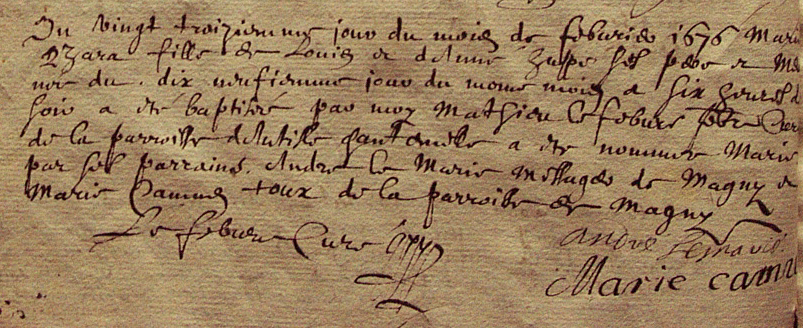 Du vingt troiziemme jour du mois de febvrier 1676 Marie
fille de Louis et danne ses pere et me
nee du dix neufiemme jour du mome mois a six heures du
soir a été baptisée par moy Mathieu lefebure pbre Cure
de la parroisse a été nommee Marie
par ses parrains. Andre le Marie Messager de Magny et
Marie Cammus toux de la parroisse de Magny
Lefebure Cure
andre Lemarie
Marie camu